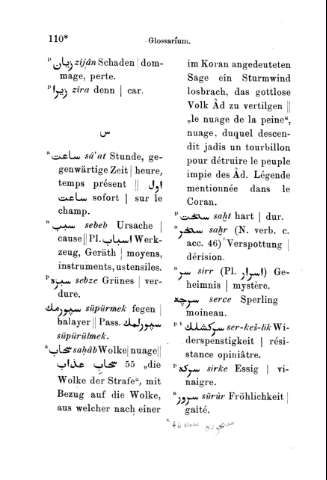 110*
Glossarium.
ᵖ زيان zijân Schaden | dom-
mage, perte.
ᵖ زيرا zira denn | car.
س
ᵃ ساعت sâ'at Stunde, ge-
genwärtige Zeit | heure,
temps présent ‖ اول
ساعت sofort | sur le
champ.
ᵃ سبب sebeb Ursache |
cause ‖ Pl. اسباب Werk-
zeug, Geräth | moyens,
instruments, ustensiles.
ᵖ سبزه sebze Grünes | ver-
dure.
سپورمك süpürmek fegen |
balayer ‖ Pass. سپورلمك
süpürülmek.
ᵃ سحاب saḥâb Wolke | nuage ‖
سحاب عذاب 55 „die
Wolke der Strafe“, mit
Bezug auf die Wolke,
aus welcher nach einer
im Koran angedeuteten
Sage ein Sturmwind
losbrach, das gottlose
Volk Âd zu vertilgen ‖
„le nuage de la peine“,
nuage, duquel descen-
dit jadis un tourbillon
pour détruire le peuple
impie des Âd. Légende
mentionnée dans le
Coran.
ᵖ سخت saḫt hart | dur.
ᵃ سخر saḫr (N. verb. c.
acc. 46) Verspottung |
dérision.
ᵃ سر sirr (Pl. اسرار) Ge-
heimnis | mystère.
سرچه serce Sperling
moineau.
ᵖ ᵗ سركشلك ser-keš-lik Wi-
derspenstigkeit | rési-
stance opiniâtre.
ᵖ سركه sirke Essig | vi-
naigre.
ᵃ سرور sürûr Fröhlichkeit |
gaîté.